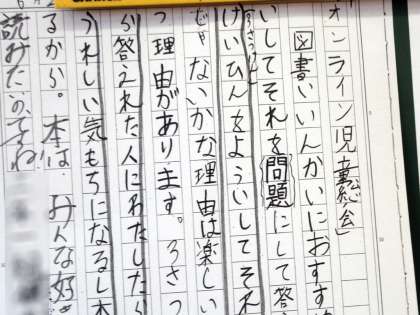 オンライン児童総会」
図書いいんかいにおすす
いしてそれを問題にして答
けいひんをよういしてそれ
じゃないかな理由は楽しい
つ理由があります。ろさつ
ら答えれた人にわたしたら
うれしい気もちになるし本
るから。本は、みんな好き
読みたい